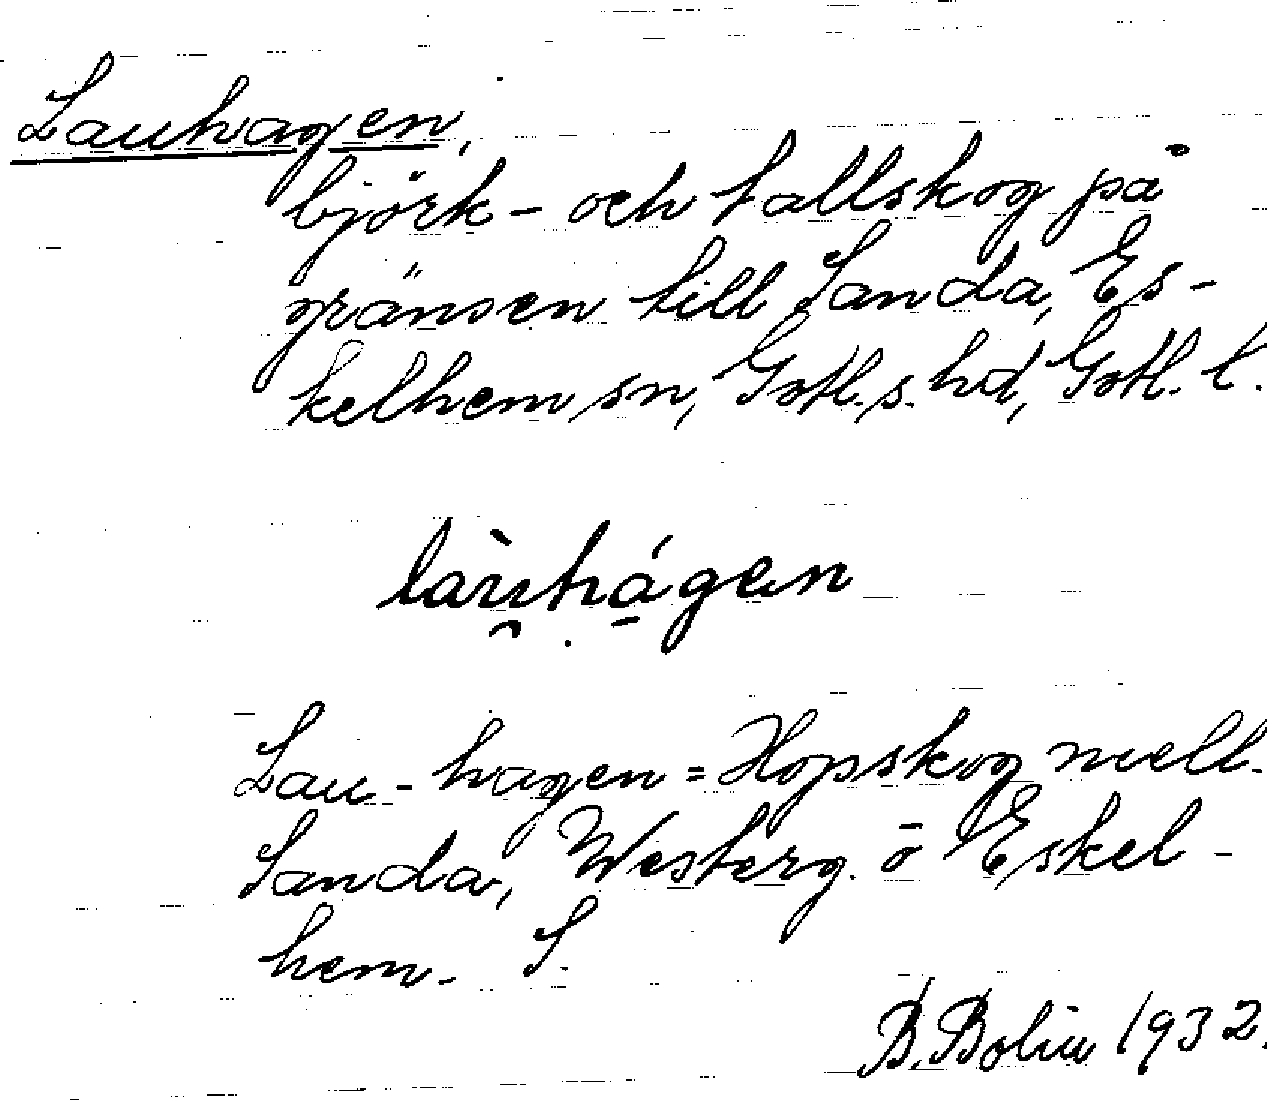 Lauhagen,
björk- och tallskog på
gränsen till Sanda, Es-
kelhem sn, Gotl. s. hd, Gotl. l.
làu̯hágen
Lau-hagen = Hopskog mell.
Sanda, Westerg. o Eskel-
hem. S.
B. Bolin 1932.